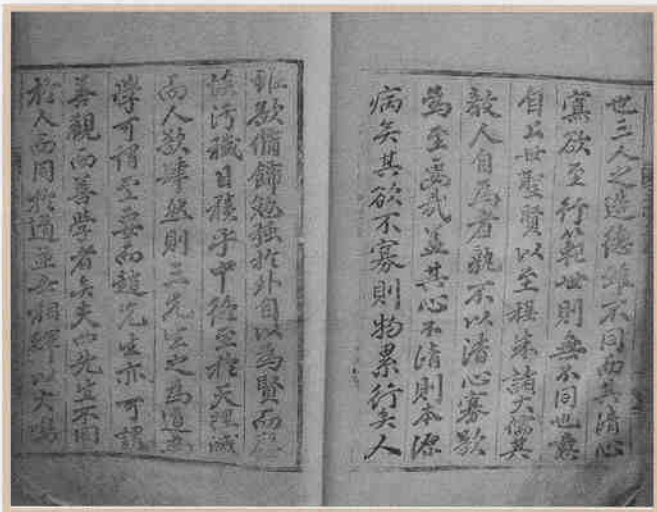 世三人之造德雖不同而其清心
寡欲至行範世則無不同也嘗
自上世聖賢以至程朱諸大儒其
教人自為者孰不以清心寡欲
為至焉哉蓋其心不清則本源
病矣其欲不寡則物累行矣人
雖欲脩飾勉強於外自以為賢而
汙穢日積乎中從至於天理滅
而人欲肆然則三先生之為道
學可謂至要而趙先生亦可謂
善觀而善學者矣夫四先生不同
於人而同於道並世相輝以大鳴